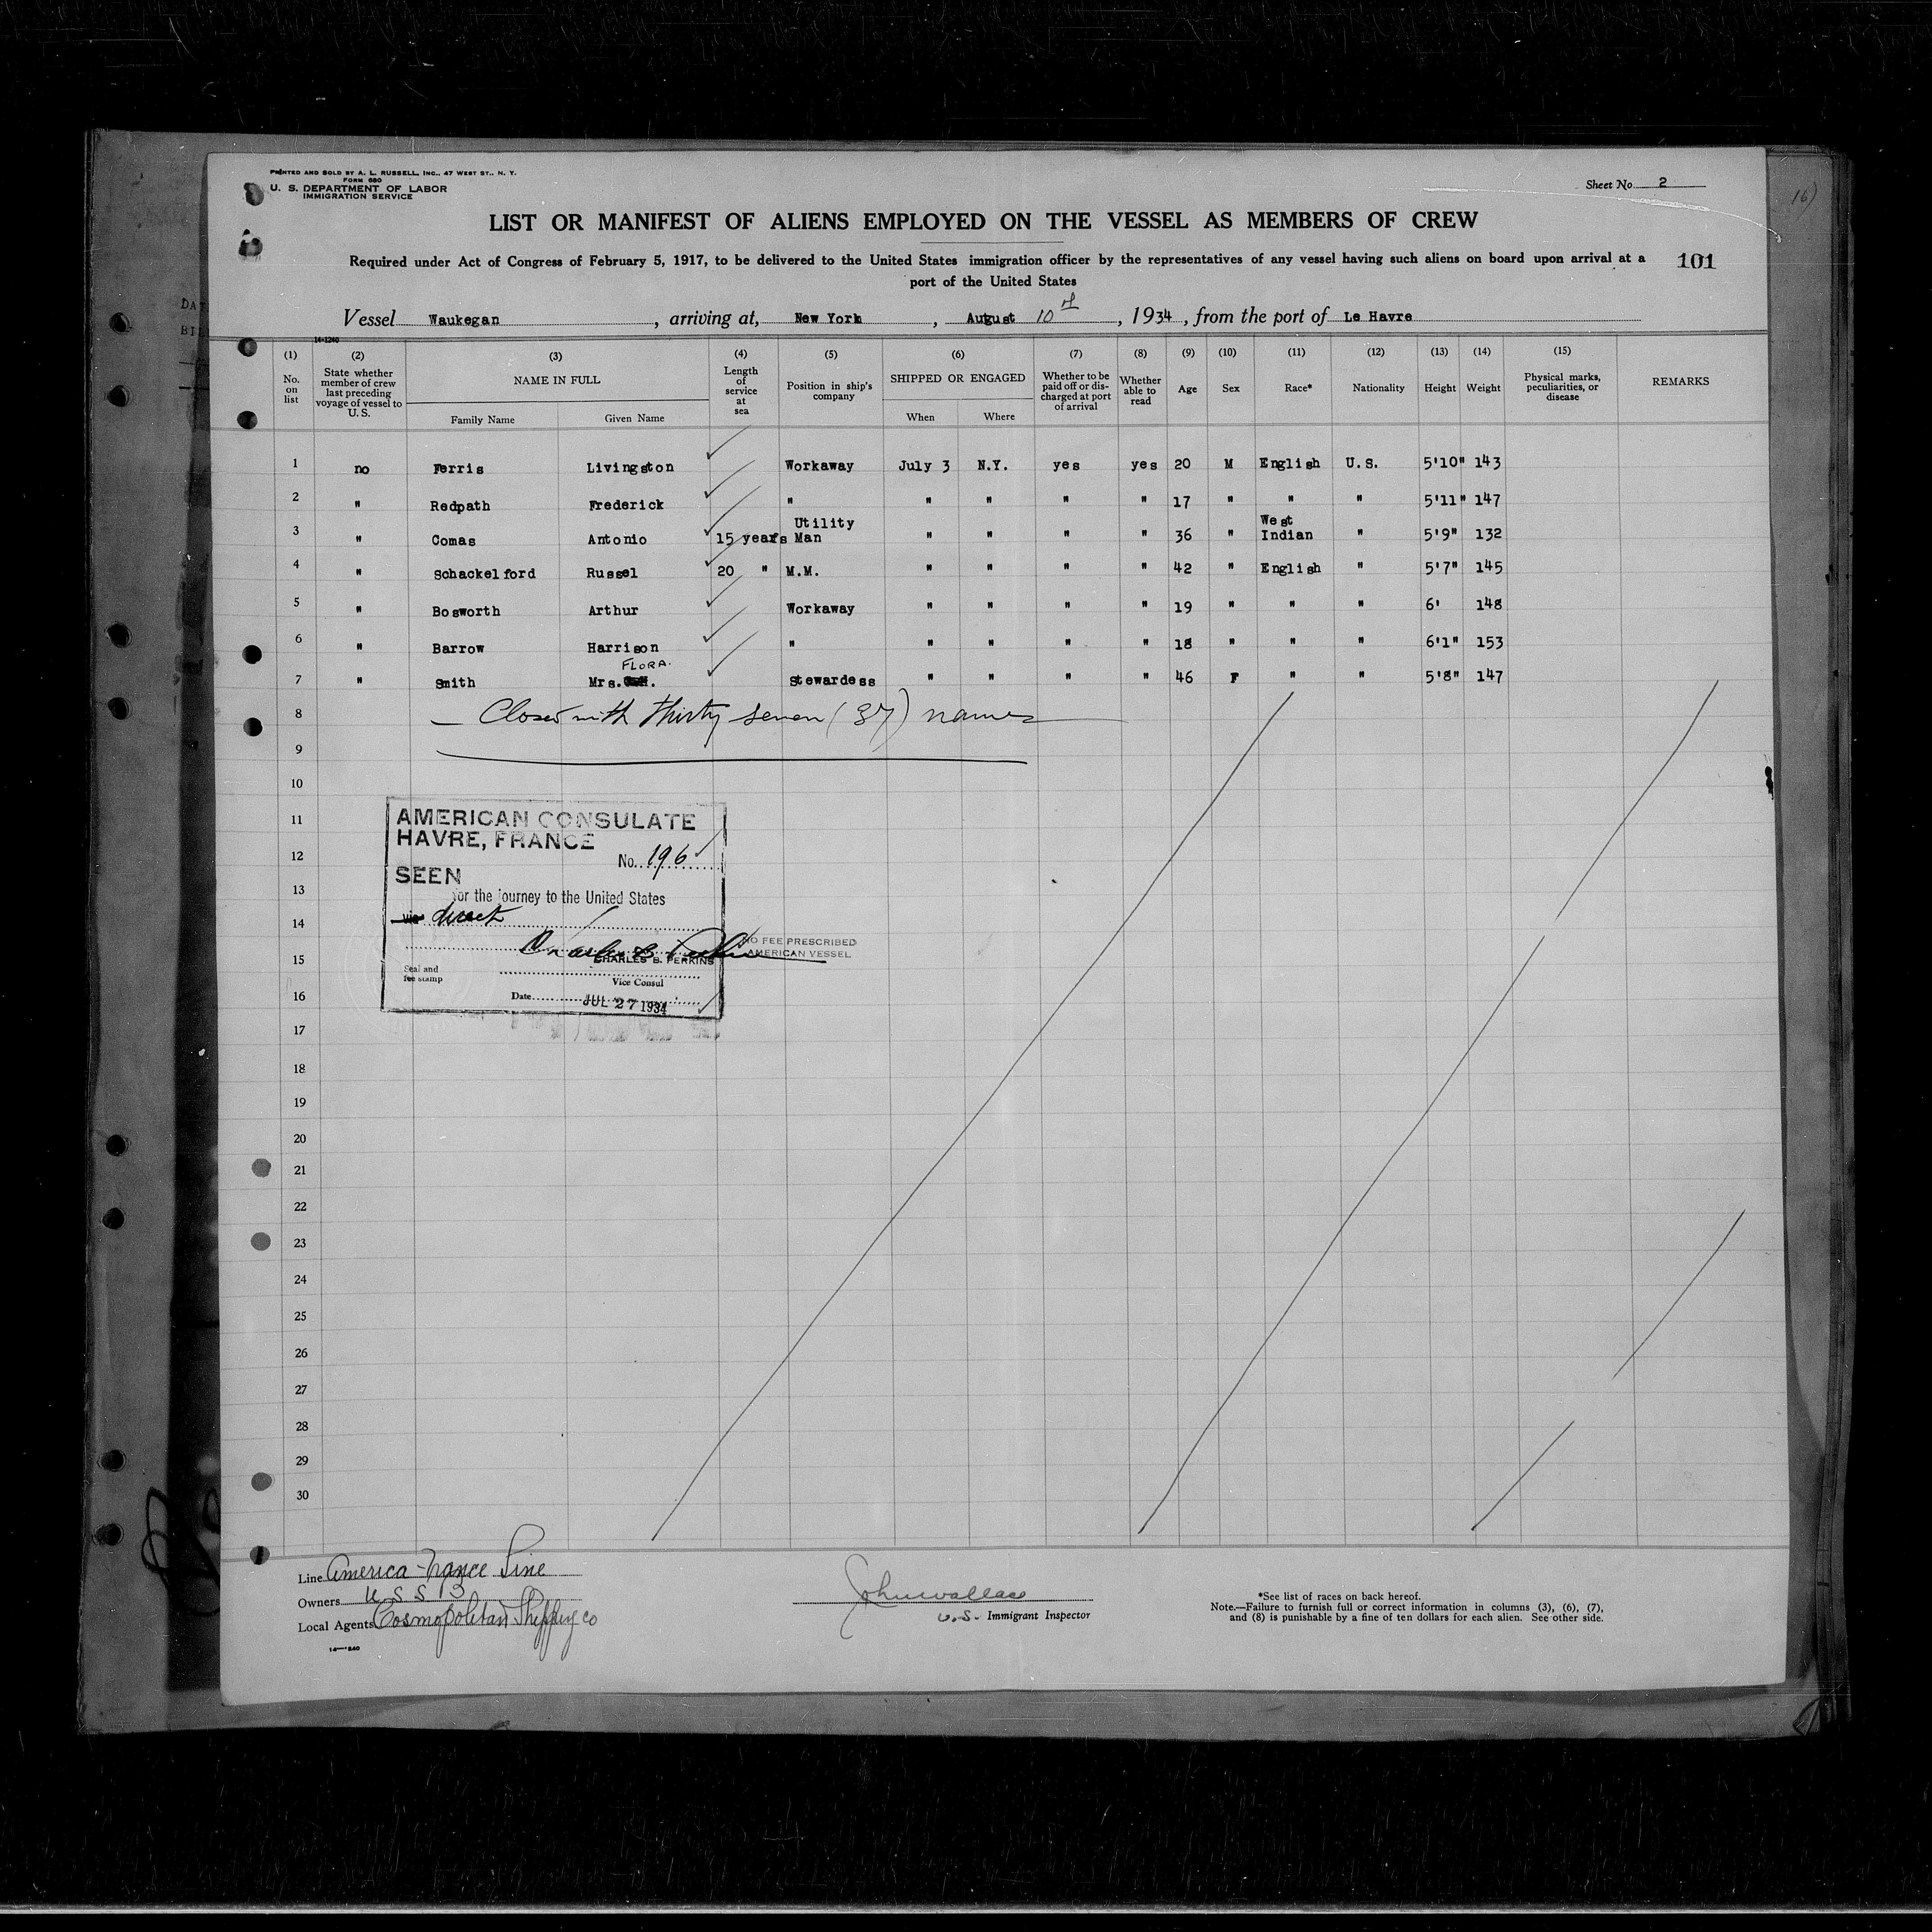 PRINTED AND SOLD BY A. L. RUSSELL, INC., 47 WEST ST., N. Y.
FORM 680
U. S. DEPARTMENT OF LABOR
IMMIGRATION SERVICE
Sheet No. 2
16)
LIST OR MANIFEST OF ALIENS EMPLOYED ON THE VESSEL AS MEMBERS OF CREW
Required under Act of Congress of February 5, 1917, to be delivered to the United States immigration officer by the representatives of any vessel having such aliens on board upon arrival at a
port of the United States
101
Vessel Waukegan, arriving at, New York, August 10th, 1934, from the port of Le Havre
14-1240
(1) (2) (3) (4) (5) (6) (7) (8) (9) (10) (11) (12) (13) (14) (15)
No. on list
State whether member of crew last preceding voyage of vessel to U. S.
NAME IN FULL
Family Name Given Name
Length of service at sea
Position in ship's company
SHIPPED OR ENGAGED
When Where
Whether to be paid off or discharged at port of arrival
Whether able to read
Age
Sex
Race*
Nationality
Height
Weight
Physical marks, peculiarities, or disease
REMARKS
1 no Ferris Livingston Workaway July 3 N.Y. yes yes 20 M English U.S. 5'10" 143
2 " Redpath Frederick " " " " " 17 " " " 5'11" 147
3 " Comas Antonio 15 years Utility Man " " " " 36 " West Indian " 5'9" 132
4 " Schackelford Russel 20 " M.M. " " " " 42 " English " 5'7" 145
5 " Bosworth Arthur Workaway " " " " 19 " " " 6' 148
6 " Barrow Harrison " " " " " 18 " " " 6'1" 153
FLORA.
7 " Smith Mrs. Stewardess " " " " 46 F " " 5'8" 147
8 Closed with thirty seven (37) names
9
10
11
12
13
14
15
16
17
18
19
20
21
22
23
24
25
26
27
28
29
30
AMERICAN CONSULATE
HAVRE, FRANCE
No. 196
SEEN
for the journey to the United States
via direct
Charles B. Perkins
CHARLES B. PERKINS
NO FEE PRESCRIBED
AMERICAN VESSEL
Seal and
fee stamp
Vice Consul
Date JUL 27 1934
Line America-France Line
Owners U S S B
Local Agents Cosmopolitan Shipping Co
14—1240
John Wallace
U.S. Immigrant Inspector
*See list of races on back hereof.
Note.—Failure to furnish full or correct information in columns (3), (6), (7),
and (8) is punishable by a fine of ten dollars for each alien. See other side.